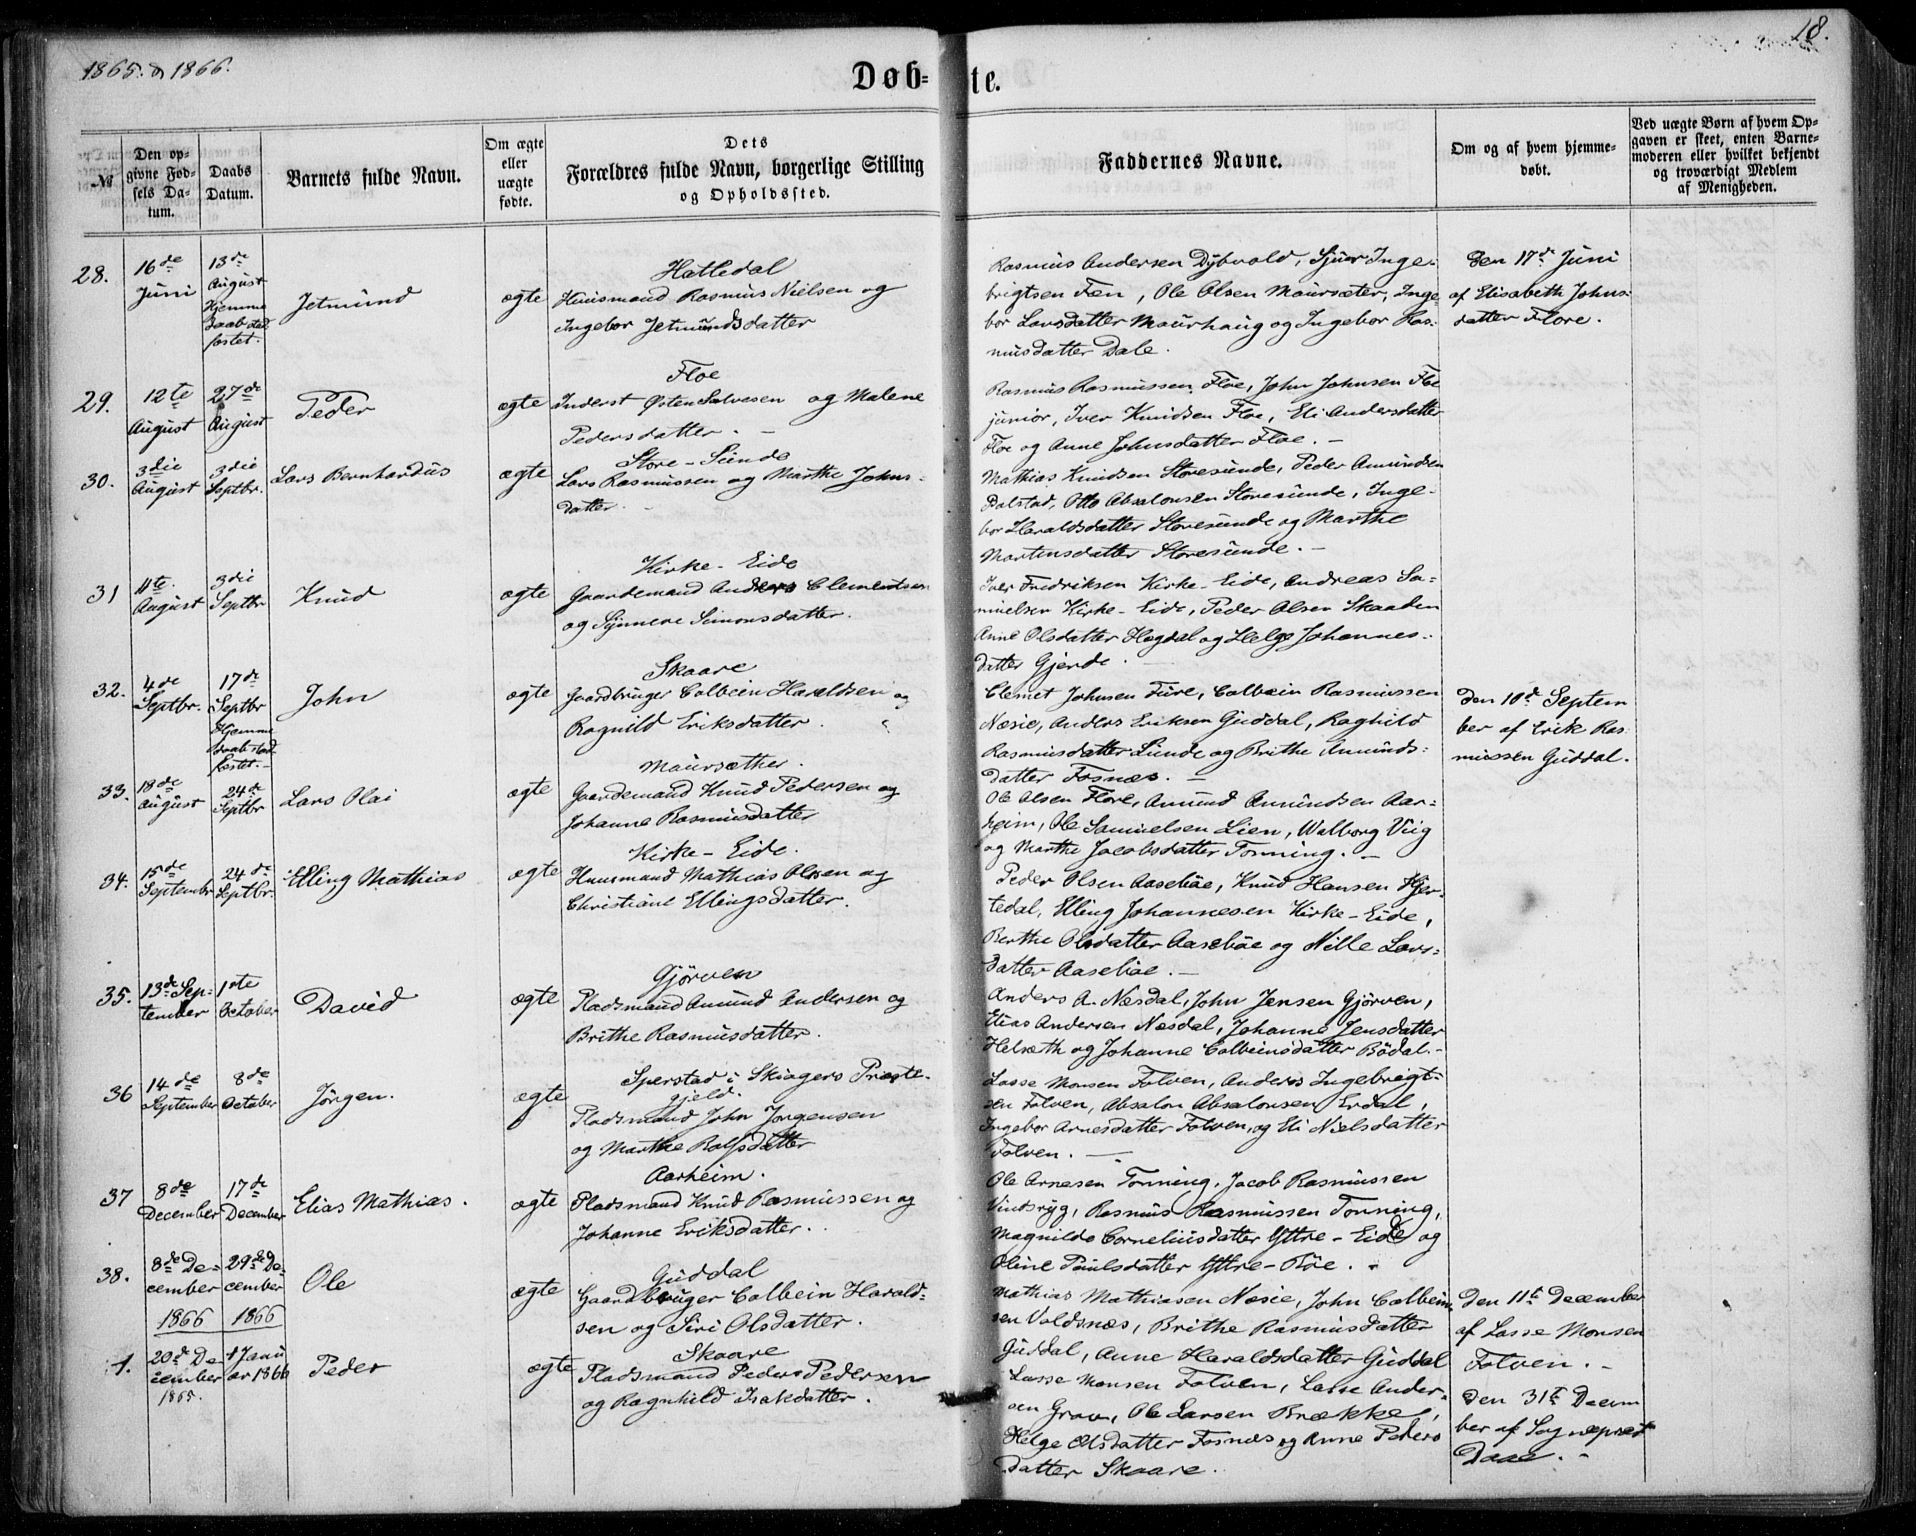 1865. & 1866.
18.
Døb=
te.
No
Den op-
givne Fød-
sels Da-
tum.
Daabs
Datum.
Barnets fulde Navn.
Om ægte
eller
uægte
fødte.
Dets
Forældres fulde Navn, borgerlige Stilling
og Opholdssted.
Faddernes Navne.
Om og af hvem hjemme-
døbt.
Ved uægte Børn af hvem Op-
gaven er skeet, enten Barne-
moderen eller hvilket bekjendt
og troværdigt Medlem
af Menigheden.
28.
16de
Juni
13de
August
Hjemme
daab stad
fæstet.
Jetmund
ægte
Hatledal
Huusmand Rasmus Nielsen og
Ingebor Jetmundsdatter
Rasmus Andersen Dybvold, Sjur Inge-
brigtsen Fæn, Ole Olsen Maursæter, Inge-
bor Larsdatter Maurhaug og Ingebor Ras-
musdatter Dale.
Den 17de Juni
af Elisabeth Johns-
datter Flore.
29.
12te
August
27de
August
Peder
ægte
Floe
Inderst Østen Salvesen og Malene
Pedersdatter. —
Rasmus Rasmussen Floe, John Johnsen Floe
junior, Iver Knudsen Floe, Eli Andersdatter
Floe og Anne Johnsdatter Floe. —
30.
3die
August
3die
Septbr.
Lars Bernhardus
ægte
Store-Sunde
Lars Rasmussen og Marthe Johns-
datter. —
Mathias Knudsen Storesunde, Peder Amundsen
Dalstad, Otto Absalonsen Storesunde, Inge-
bor Haraldsdatter Storesunde og Marthe
Martinsdatter Storesunde. —
31
11te
August
3die
Septbr
Knud
ægte
Kirke-Eide
Gaardemand Anders Clementsen
og Synneve Simonsdatter.
Iver Fredriksen Kirke-Eide, Andreas Sa-
muelsen Kirke-Eide, Peder Olsen Skaaden
Anne Olsdatter Hegdal og Helge Johannes-
datter Gjerde. —
32.
4de
Septbr.
17de
Septbr
Hjemme
daab stad
fæstet. —
John
ægte
Skaare
Gaardbruger Colbein Haraldsen og
Ragnild Eriksdatter.
Clemet Johnsen Fure, Colbein Rasmussen
Næsie, Anders Eriksen Guddal, Raghild
Rasmusdatter Sunde og Brithe Amunds-
datter Fosnæs. —
Den 10de Septem
ber af Erik Ras-
mussen Guddal.
33.
18de
August
24de
Septbr
Lars Olai
ægte
Maursæther.
Gaardemand Knud Pedersen og
Johanne Rasmusdatter
Ole Olsen Flore, Amund Amundsen Aar-
heim, Ole Samuelsen Lien, Walborg Viig
og Marthe Jacobsdatter Tonning. —
34.
15de
September
24de
Septbr.
Elling Mathias
ægte
Kirke-Eide.
Huusmand Mathias Olsen og
Christiane Ellingsdatter.
Peder Olsen Aasebøe, Knud Hansen Hjer-
tedal, Elling Johannesen Kirke-Eide,
Berthe Olsdatter Aasebøe og Nille Lars-
datter Aasebøe. —
35.
13de Sep-
tember
1ste
October
David
ægte
Gjørven
Pladsmand Amund Andersen og
Brithe Rasmusdatter.
Anders A. Næsdal, John Jensen Gjørven,
Elias Andersen Næsdal, Johanne Jensdatter
Helsæth og Johanne Colbeinsdatter Bödal. —
36
14de
September
8de
October
Jörgen.
ægte
Sperstad i Skiagers Præste-
gjeld.
Pladsmand John Jorgensen
og Marthe Rolfsdatter
Lasse Monsen Folven, Anders Ingebrigt-
sen Folven, Absalon Absalonsen Erdal,
Ingebor Arnesdatter Folven, og Eli Nielsdatter
Folven. —
37
8de
December
17de
December
Elias Mathias.
ægte
Aarheim.
Pladsmand Knud Rasmussen og
Johanne Eriksdatter.
Ole Arnesen Tonning, Jacob Rasmussen
Vindsryg, Rasmus Rasmussen Tonning,
Magnilde Corneliusdatter Yttre-Eide og
Oline Paulsdatter Yttre-Röe. —
38.
8de De-
cember
29de De-
cember
Ole
ægte
Guddal
Gaardbruger Colbein Harald-
sen og Siri Olsdatter.
Mathias Mathiasen Næsie, John Colbein-
sen Voldsnæs, Brithe Rasmusdatter
Guddal, Anne Haraldsdatter Guddal
Den 11te December
af Lasse Monsen
Folven. —
1866
1866
1.
20de De-
cember
1865.
1 Janu
ar 1866
Peder
ægte
Skaare
Pladsmand Peder Pedersen
og Ragnhild Isakdatter.
Lasse Monsen Folven, Lasse Ander-
sen Grov, Ole Larsen Brække,
Helge Olsdatter Fosnæs og Anne Peders
datter Skaare.
Den 31te Decem
ber af Sognepræst
Daae. —